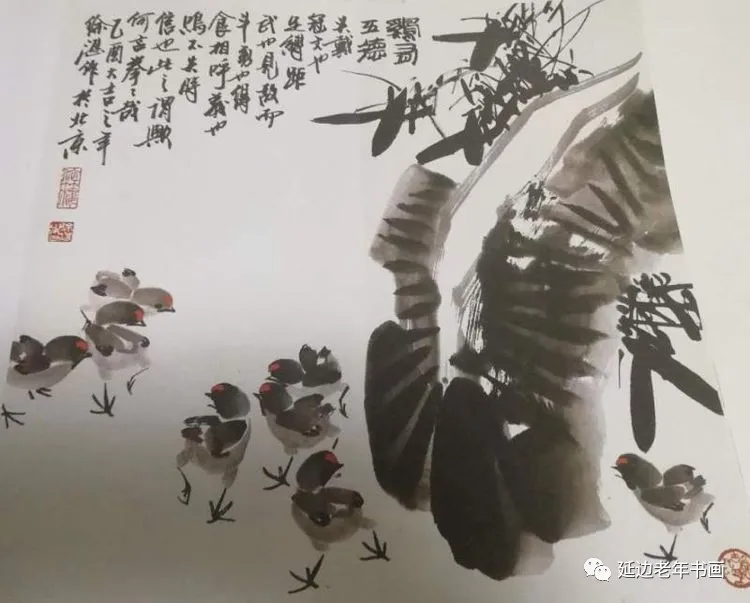 鷄有
五德
头戴
冠文也
足縛距
武也見敌而
斗勇也得
食相呼義也
鳴不失時
信也此之謂歟
何言哉
乙酉大吉之年
徐湛作於北京
延边老年书画